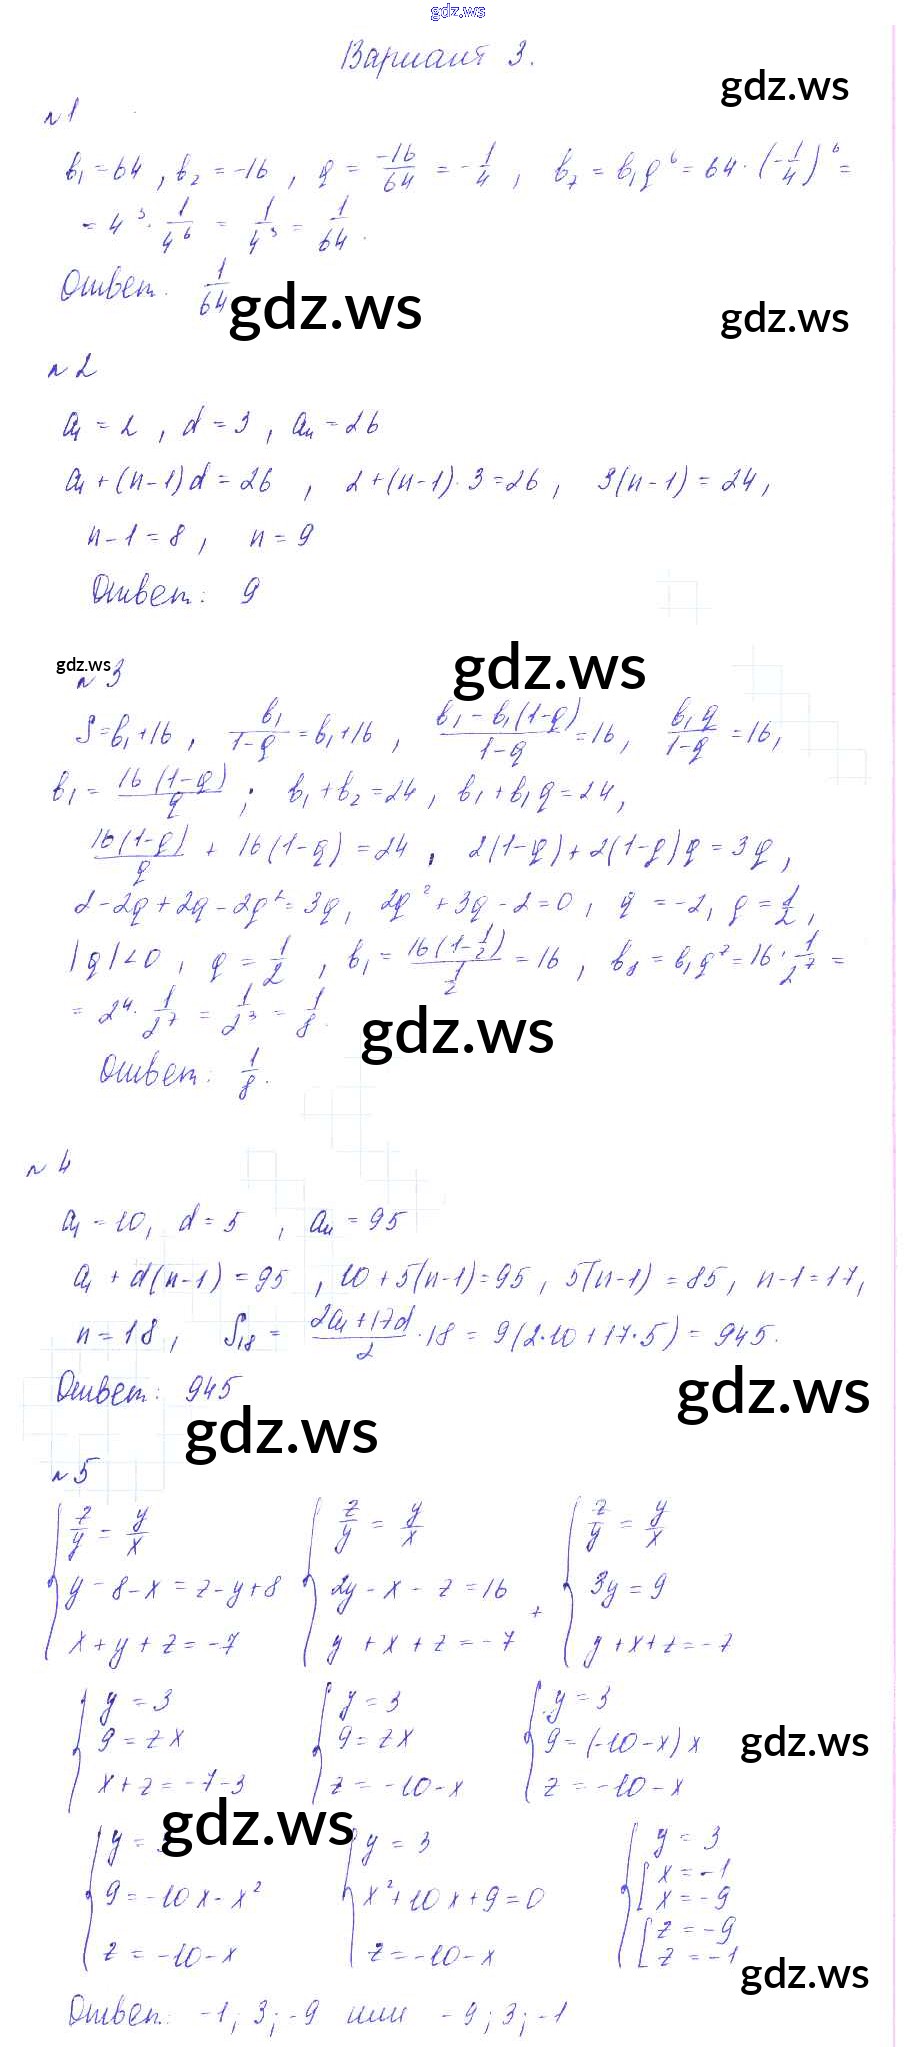 gdz.ws
Вариант 3.
gdz.ws
№1
b₁=64, b₂=-16, q = -16/64 = -1/4, b₇ = b₁q⁶ = 64·(-1/4)⁶ =
= 4³·1/4⁶ = 1/4³ = 1/64.
Ответ. 1/64
gdz.ws
gdz.ws
№2
a₁ = 2, d = 3, aₙ = 26
a₁ + (n-1)d = 26, 2+(n-1)·3=26, 3(n-1) = 24,
n-1=8, n=9
Ответ: 9
gdz.ws
gdz.ws
№3
S=b₁+16, b₁/(1-q) = b₁+16, (b₁-b₁(1-q))/(1-q) = 16, b₁q/(1-q) = 16,
b₁ = 16(1-q)/q; b₁+b₂=24, b₁+b₁q=24,
16(1-q)/q + 16(1-q) = 24, 2(1-q)+2(1-q)q = 3q,
2-2q+2q-2q²=3q, 2q²+3q-2=0, q=-2, q=1/2,
|q|<0, q = 1/2, b₁ = 16(1-1/2)/(1/2) = 16, b₈ = b₁q⁷=16·1/2⁷ =
= 2⁴·1/2⁷ = 1/2³ = 1/8.
gdz.ws
Ответ: 1/8.
№4
a₁=10, d=5, aₙ=95
a₁+d(n-1)=95, 10+5(n-1)=95, 5(n-1)=85, n-1=17,
n=18, S₁₈ = (2a₁+17d)/2·18 = 9(2·10+17·5) = 945.
Ответ: 945
gdz.ws
gdz.ws
№5
{ z/y = y/x { z/y = y/x { z/y = y/x
y-8-x=z-y+8 2y-x-z=16 + 3y=9
x+y+z=-7 y+x+z=-7 y+x+z=-7
{ y=3 { y=3 { y=3
9=zx 9=zx 9=(-10-x)x
x+z=-7-3 z=-10-x z=-10-x
gdz.ws
gdz.ws
{ y= { y=3 { y=3
9=-10x-x² x²+10x+9=0 [ x=-1 x=-9
z=-10-x z=-10-x [ z=-9 z=-1
gdz.ws
Ответ: -1; 3; -9 или -9; 3; -1